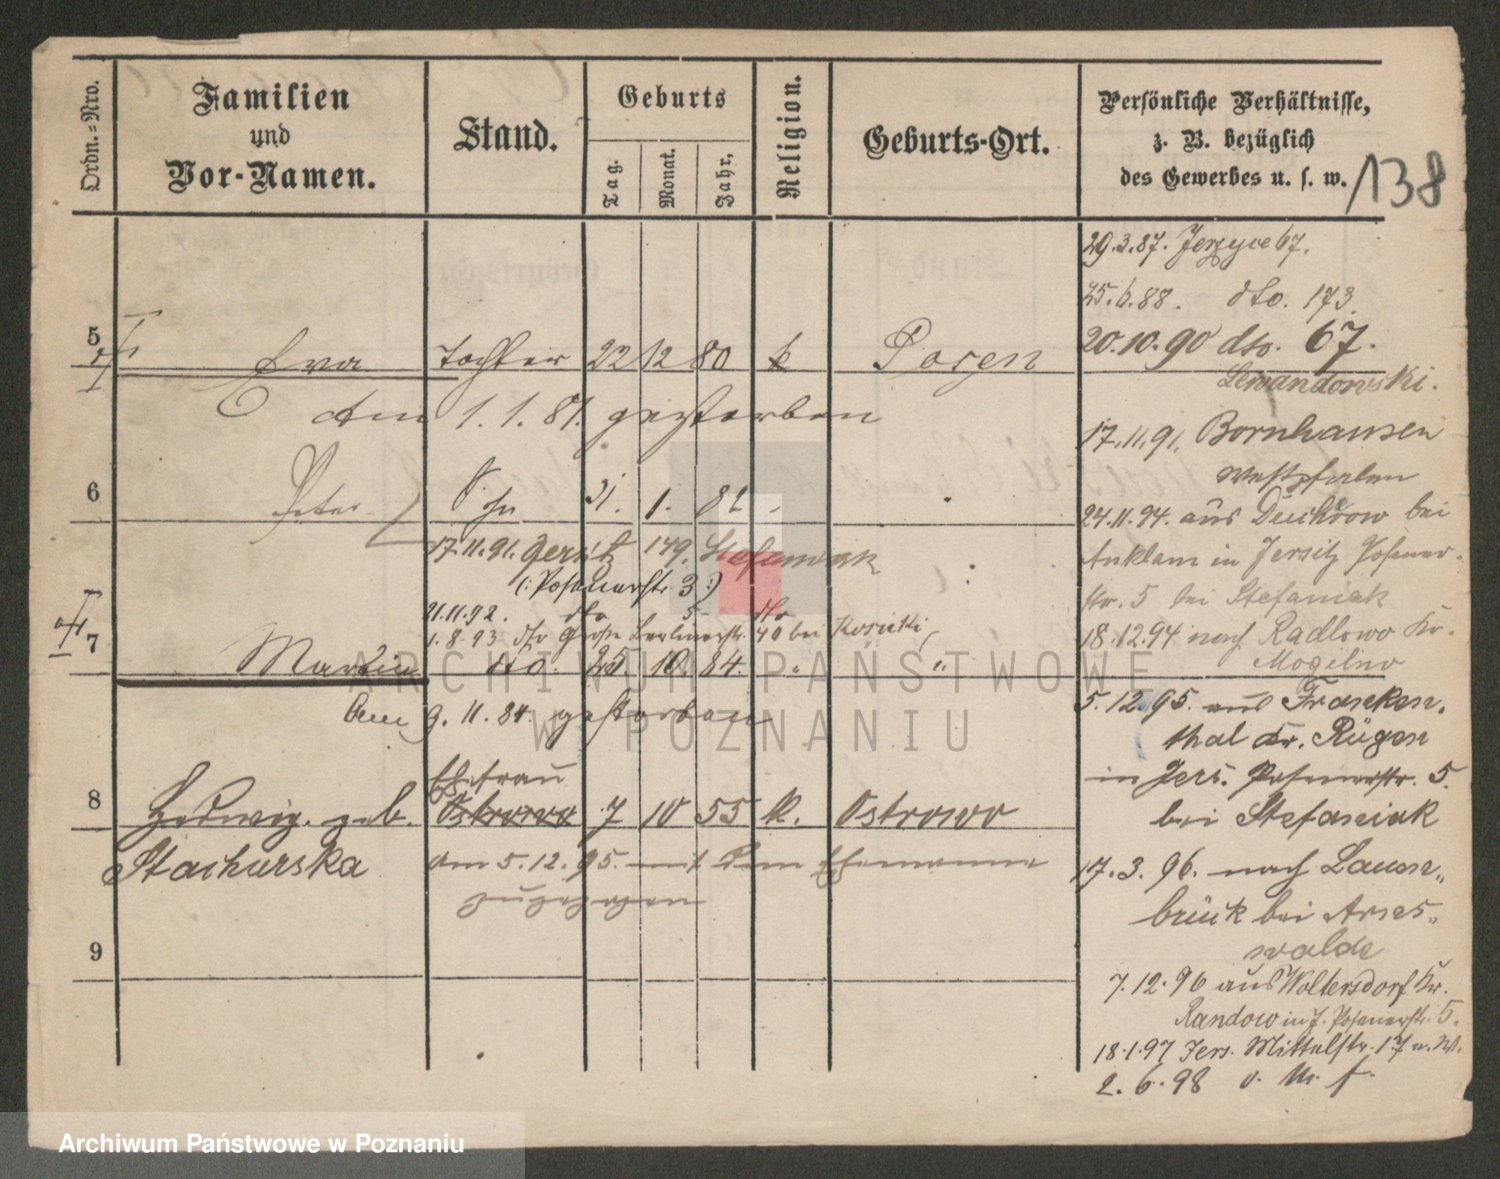 Ordn.=Nro.
Familien
und
Vor-Namen.
Stand.
Geburts
Tag.
Monat.
Jahr,
Religion.
Geburts-Ort.
Persönliche Verhältnisse,
z. B. bezüglich
des Gewerbes u. s. w.
138
29.3.87. Jerzyce 67.
25.6.88. dto. 173
20.10.90 dto. 67.
Lewandowski.
5 Eva Tochter 22 12 80 k Posen
Am 1.1.81. gestorben
17.11.91. Bornhausen
Westfalen
6 Peter Sohn 31. 1. 82
24.11.94. aus Ducherow bei
Anklam in Jersitz Posener-
str. 5 bei Stefaniak
18.12.94 nach Radlowo Kr.
Mogilno
17.11.91. Jersitz 149. Stefaniak
(: Posenerstr. 3 :)
21.11.92. dto 5 dto
1.8.93. dto Große Berlinerstr. 40 bei Kosicki
7 Martin dto. 25 10. 84. " "
9.11.84. gestorben
5.12.95. aus Franken-
thal Kr. Rügen
in Jers. Posenerstr. 5.
bei Stefaniak
8 Hedwig geb. Ehefrau Ostrowo 7 10 55 k. Ostrowo
Stachurska am 5.12.95. mit dem Ehemanne
zugezogen
17.3.96. nach
brück bei Arns-
walde
9
7.12.96 aus Woltersdorf Kr.
Randow in J. Posenerstr. 5.
18.1.97 Jers. Mittelstr. 17
2.6.98
ARCHIWUM PAŃSTWOWE
W POZNANIU
Archiwum Państwowe w Poznaniu